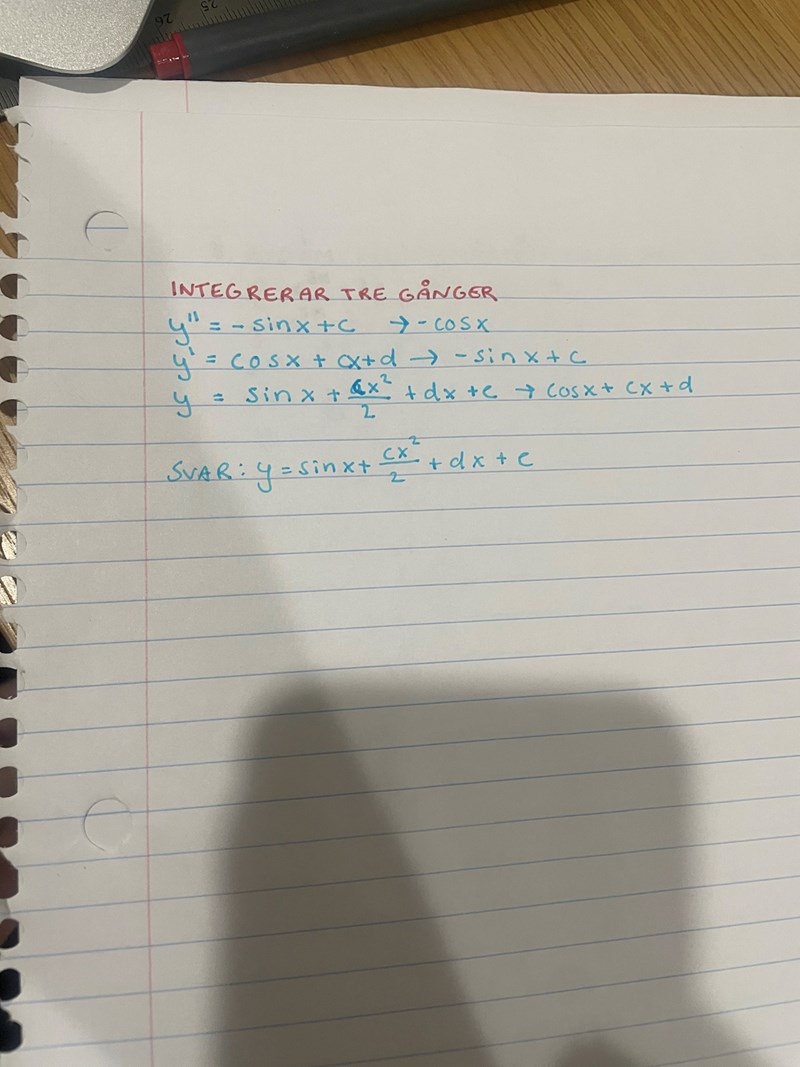 26 25
INTEGRERAR TRE GÅNGER
y'' = -sinx+c → -cosx
y' = cosx + cx+d → -sinx+c
y = sinx + cx²/2 + dx +e → cosx+ cx+d
SVAR: y = sinx+ cx²/2 + dx + e